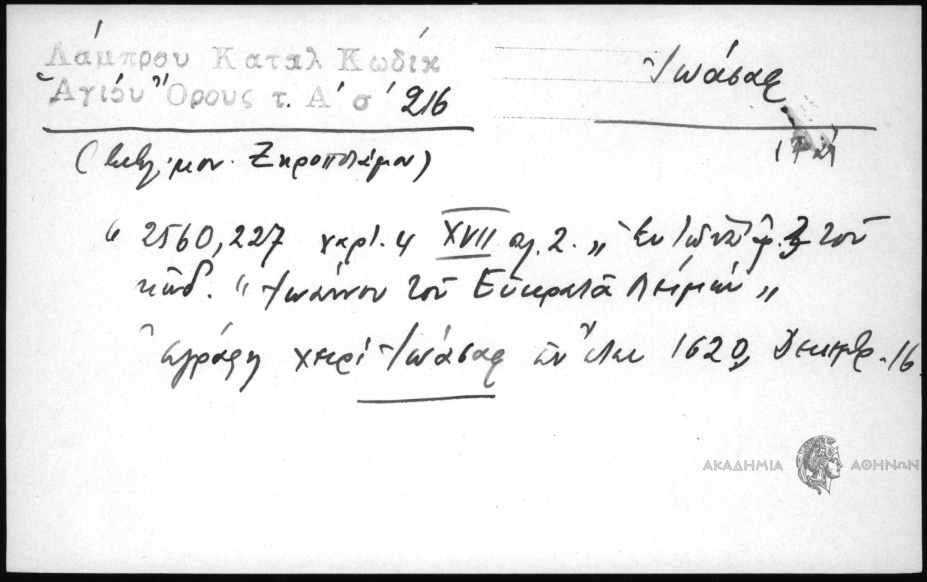 Λάμπρου Καταλ Κωδίκ
Ἁγίου Ὄρους τ. Α' σ' 216
Ἰωάσαφ
(βιβλ. μον. Ξηροποτάμου)
2560,227 χαρτ. 4 XVII σλ. 2. „ Ἐν τοῦ
κώδ. " Ἰωάννου τοῦ Εὐκρατᾶ Λειμών „
ἐγράφη χειρὶ Ἰωάσαφ ἐν ἔτει 1620, Δεκεμβρ. 16
ΑΚΑΔΗΜΙΑ ΑΘΗΝΩΝ